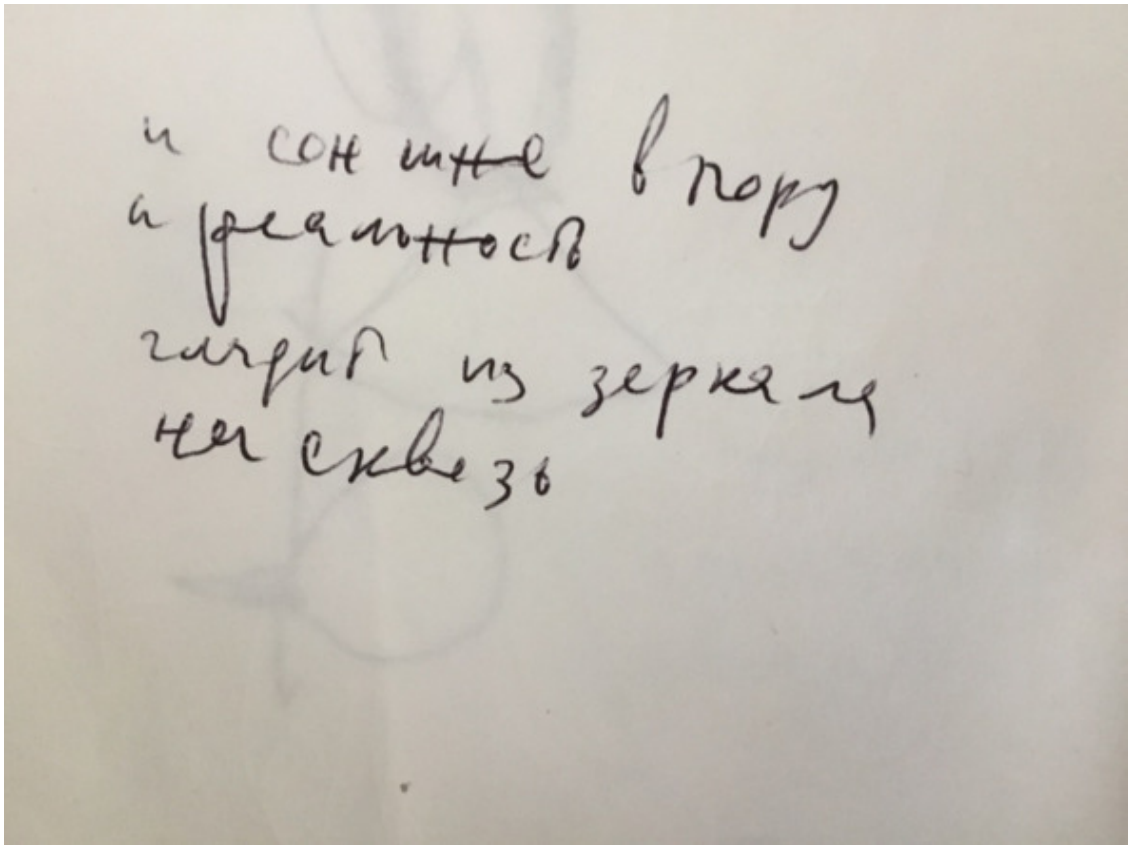 и сон мне впору
и реальность
глядит из зеркала
насквозь